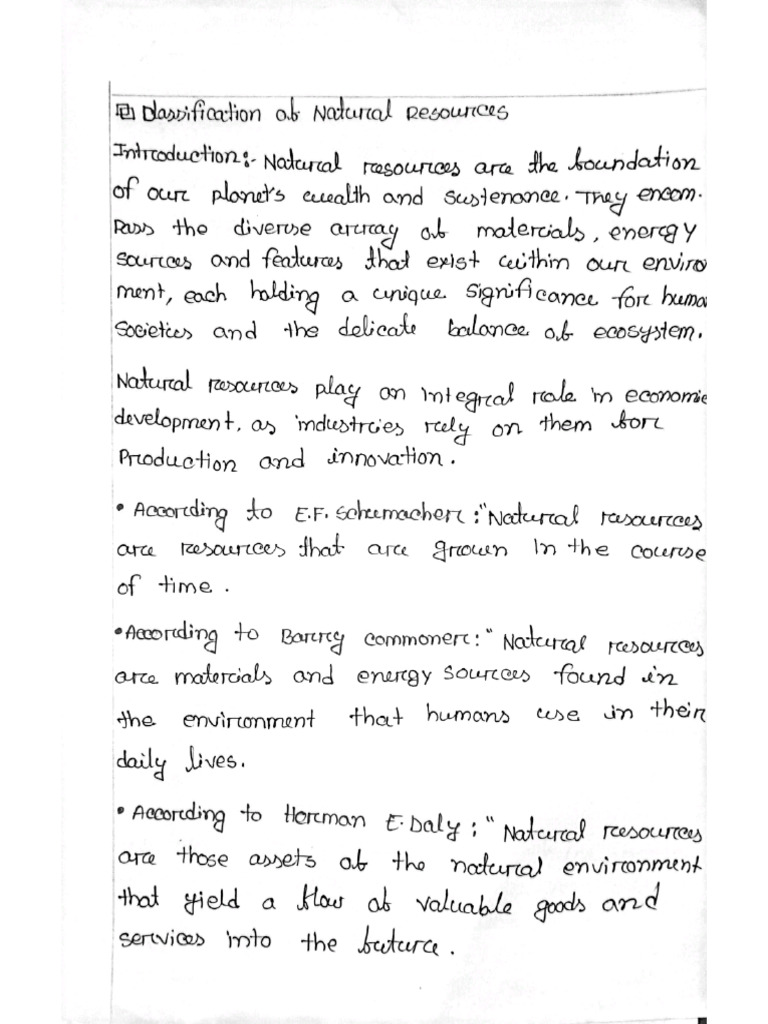 Classification of Natural Resources
Introduction:- Natural resources are the foundation
of our planet's wealth and sustenance. They encom-
pass the diverse array of materials, energy
sources and features that exist within our enviro
ment, each holding a unique significance for huma
societies and the delicate balance of ecosystem.
Natural resources play an integral role in economic
development, as industries rely on them for
Production and innovation.
• According to E.F. Schumacher: "Natural resources
are resources that are grown in the course
of time.
• According to Barry commoner: "Natural resources
are materials and energy sources found in
the environment that humans use in their
daily lives.
• According to Herman E. Daly: "Natural resources
are those assets of the natural environment
that yield a flow of valuable goods and
services into the future.